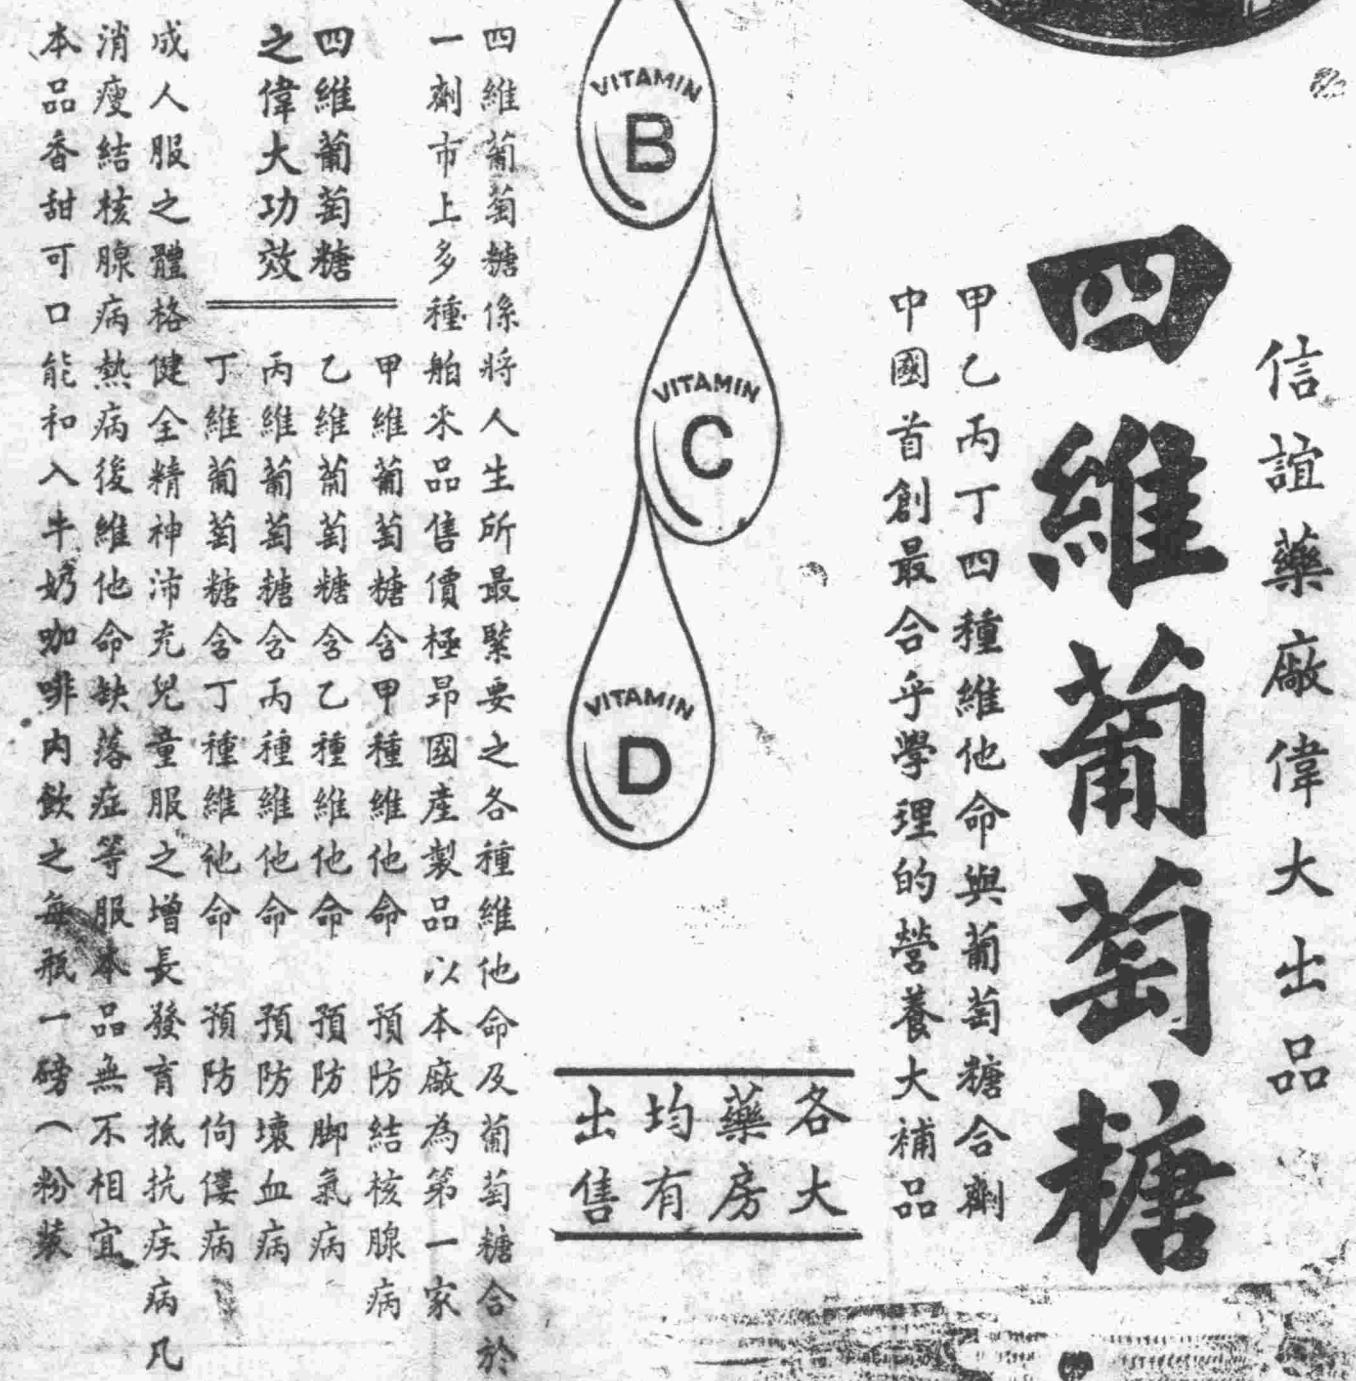 信誼藥廠偉大出品
四維葡萄糖
甲乙丙丁四種維他命與葡萄糖合劑
中國首創最合乎學理的營養大補品
各大
藥房
均有
出售
VITAMIN
B
VITAMIN
C
VITAMIN
D
四維葡萄糖係將人生所最緊要之各種維他命及葡萄糖合於
一劑市上多種舶來品售價極昂國產製品以本廠為第一家
四維葡萄糖
之偉大功效
甲維葡萄糖含甲種維他命 預防結核腺病
乙維葡萄糖含乙種維他命 預防脚氣病
丙維葡萄糖含丙種維他命 預防壞血病
丁維葡萄糖含丁種維他命 預防佝僂病
成人服之體格健全精神沛充兒童服之增長發育抵抗疾病凡
消瘦結核腺病熱病後維他命缺落症等服本品無不相宜
本品香甜可口能和入牛奶咖啡內飲之每瓶一磅（粉裝